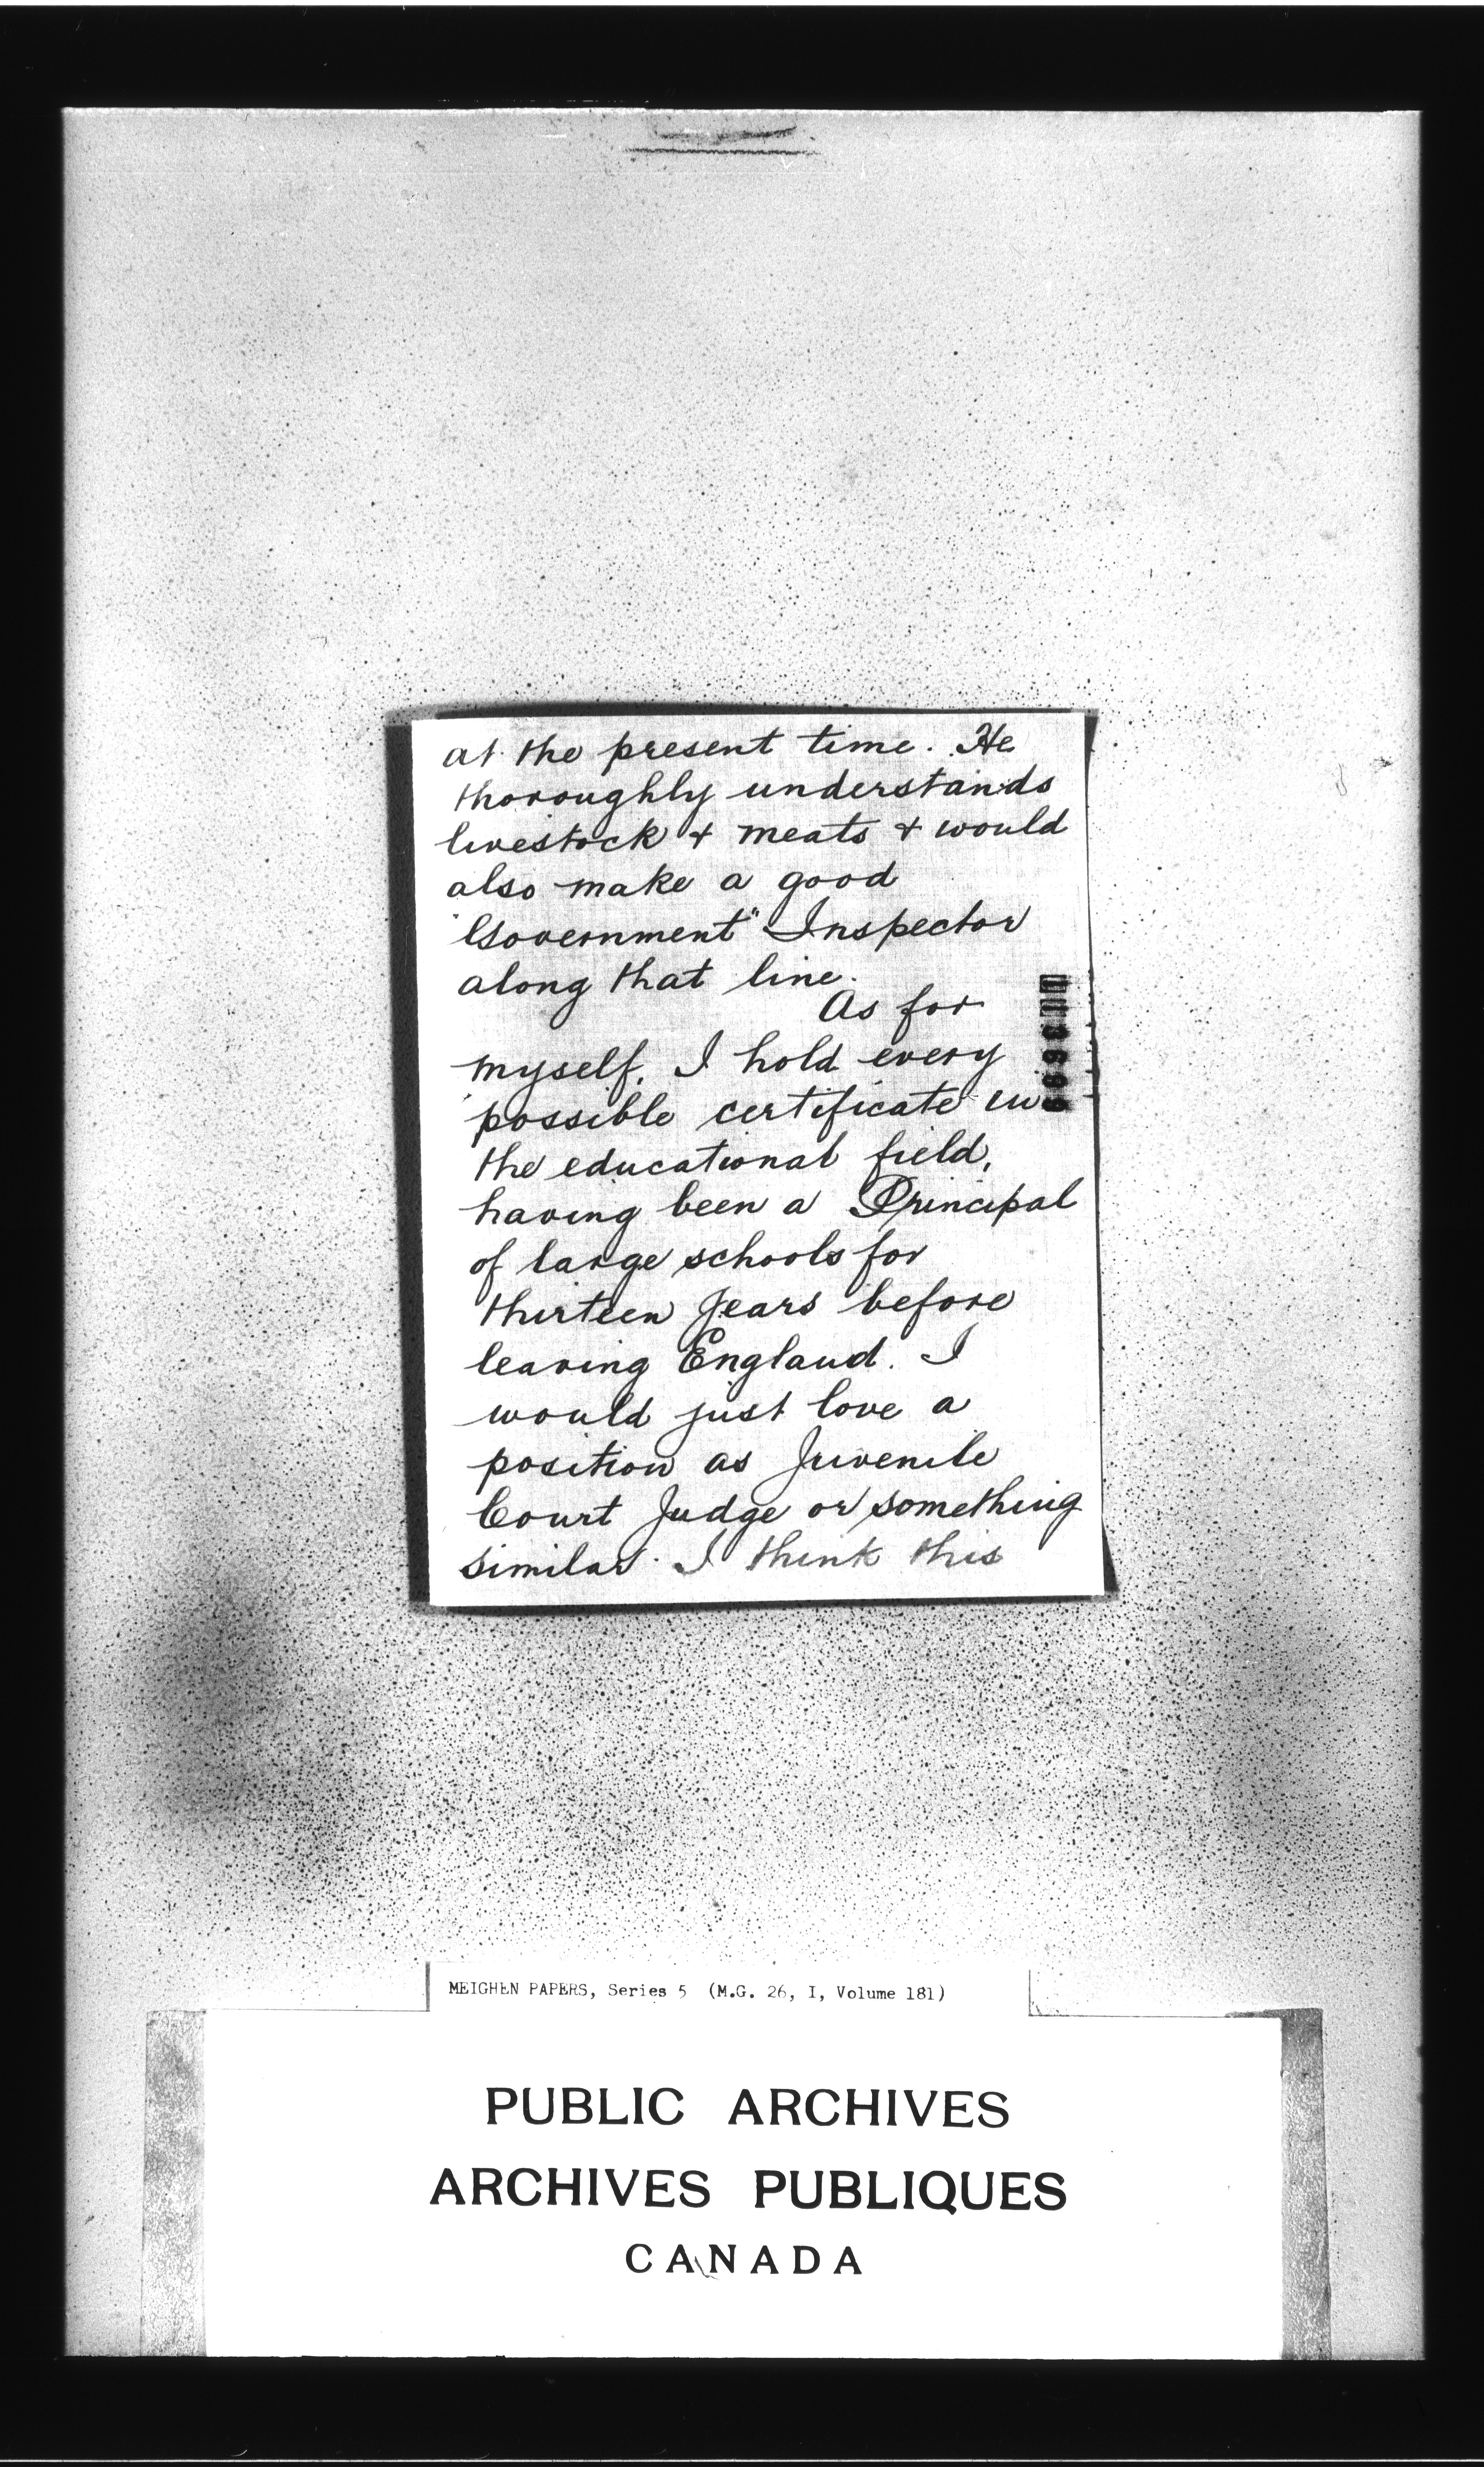 at the present time. He
thoroughly understands
livestock & meats & would
also make a good
"Government" Inspector
along that line.
As for
myself, I hold every
possible certificate in
the educational field,
having been a Principal
of large schools for
thirteen years before
leaving England. I
would just love a
position as Juvenile
Court Judge or something
similar. I think this
MEIGHEN PAPERS, Series 5 (M.G. 26, I, Volume 181)
PUBLIC ARCHIVES
ARCHIVES PUBLIQUES
CANADA